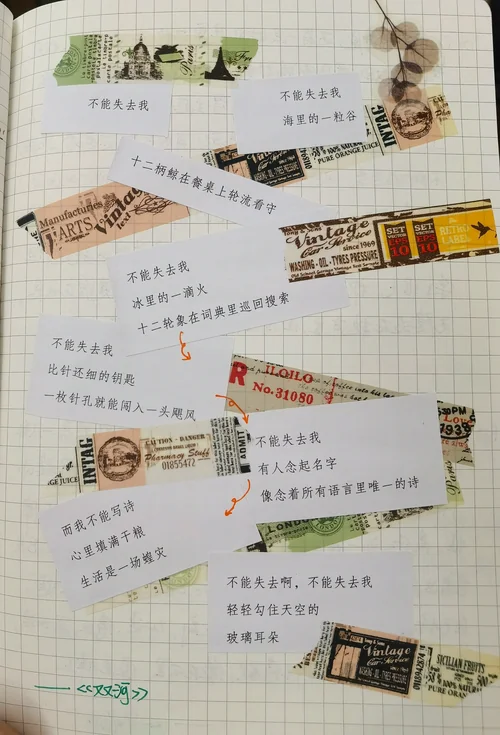 不能失去我
不能失去我
海里的一粒谷
十二柄鲸在餐桌上轮流看守
不能失去我
冰里的一滴火
十二轮象在词典里巡回搜索
不能失去我
比针还细的钥匙
一枚针孔就能闯入一头飓风
不能失去我
有人念起名字
像念着所有语言里唯一的诗
而我不能写诗
心里填满干粮
生活是一场蝗灾
不能失去啊，不能失去我
轻轻勾住天空的
玻璃耳朵
——《双河》
Paris
INTAG
PURE ORANGE JUICE
Manufacturies
ARTS
Vintage
Vintage
Car-Service
since 1969
WASHING - OIL - TYRES PRESSURE
SET
EPS
10
SET
EPS
10
RETRO
LABEL
R
ILOILO
No.31080
INTAG
CAUTION - DANGER
Pharmacy Stuff
01855472
ADMIT
PM
LONDON
Vintage
Car-Service
WASHING - OIL - TYRES PRESSURE
SICILIAN FRUITS
100% NATURAL
PURE ORAN
500